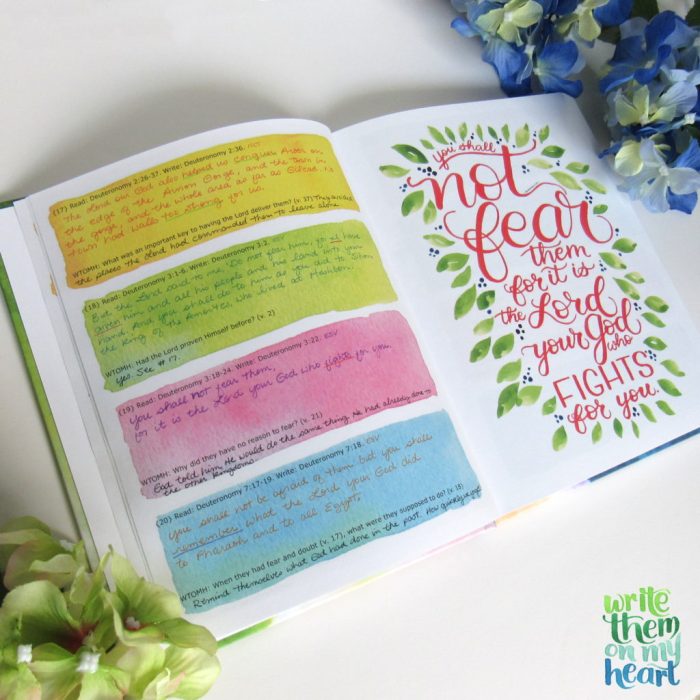 (17) Read: Deuteronomy 2:26-37. Write: Deuteronomy 2:36. NCT
The Lord our God also helped us conquer Aroer on
the edge of the Arnon Gorge, and the town in
the gorge, and the whole area as far as Gilead. No
town had walls too strong for us.
WTOMH: What was an important key to having the Lord deliver them? (v. 37) They avoided
the places the Lord had commanded them to leave alone
(18) Read: Deuteronomy 3:1-6. Write: Deuteronomy 3:2. ESV
But the Lord said to me, Do not fear him, for I have
given him and all his people and his land into your
hand. And you shall do to him as you did to Sihon
the king of the Amorites, who lived at Heshbon.
WTOMH: Had the Lord proven Himself before? (v. 2)
Yes. See #17.
(19) Read: Deuteronomy 3:18-24. Write: Deuteronomy 3:22. ESV
You shall not fear them,
for it is the Lord your God who fights for you.
WTOMH: Why did they have no reason to fear? (v. 21)
God told him He would do the same thing He had already done →
the other kingdoms.
(20) Read: Deuteronomy 7:17-19. Write: Deuteronomy 7:18. ESV
You shall not be afraid of them but you shall
remember what the Lord your God did
to Pharaoh and to all Egypt.
WTOMH: When they had fear and doubt (v. 17), what were they supposed to do? (v. 18)
Remind themselves what God had done in the past. How quickly we forget
you shall
not
fear
them
for it is
the Lord
your God
who
FIGHTS
for you.
write
them
on my
heart